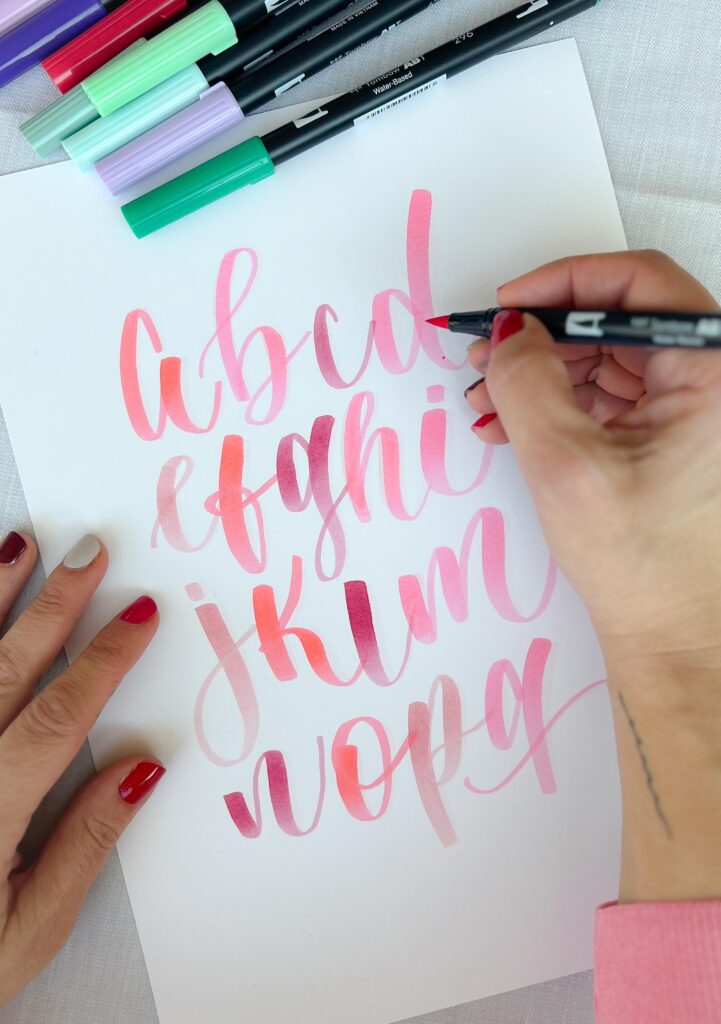 MADE IN VIETNAM
Tombow ABT 296
Water-Based
abcd
efghi
jklm
nopq